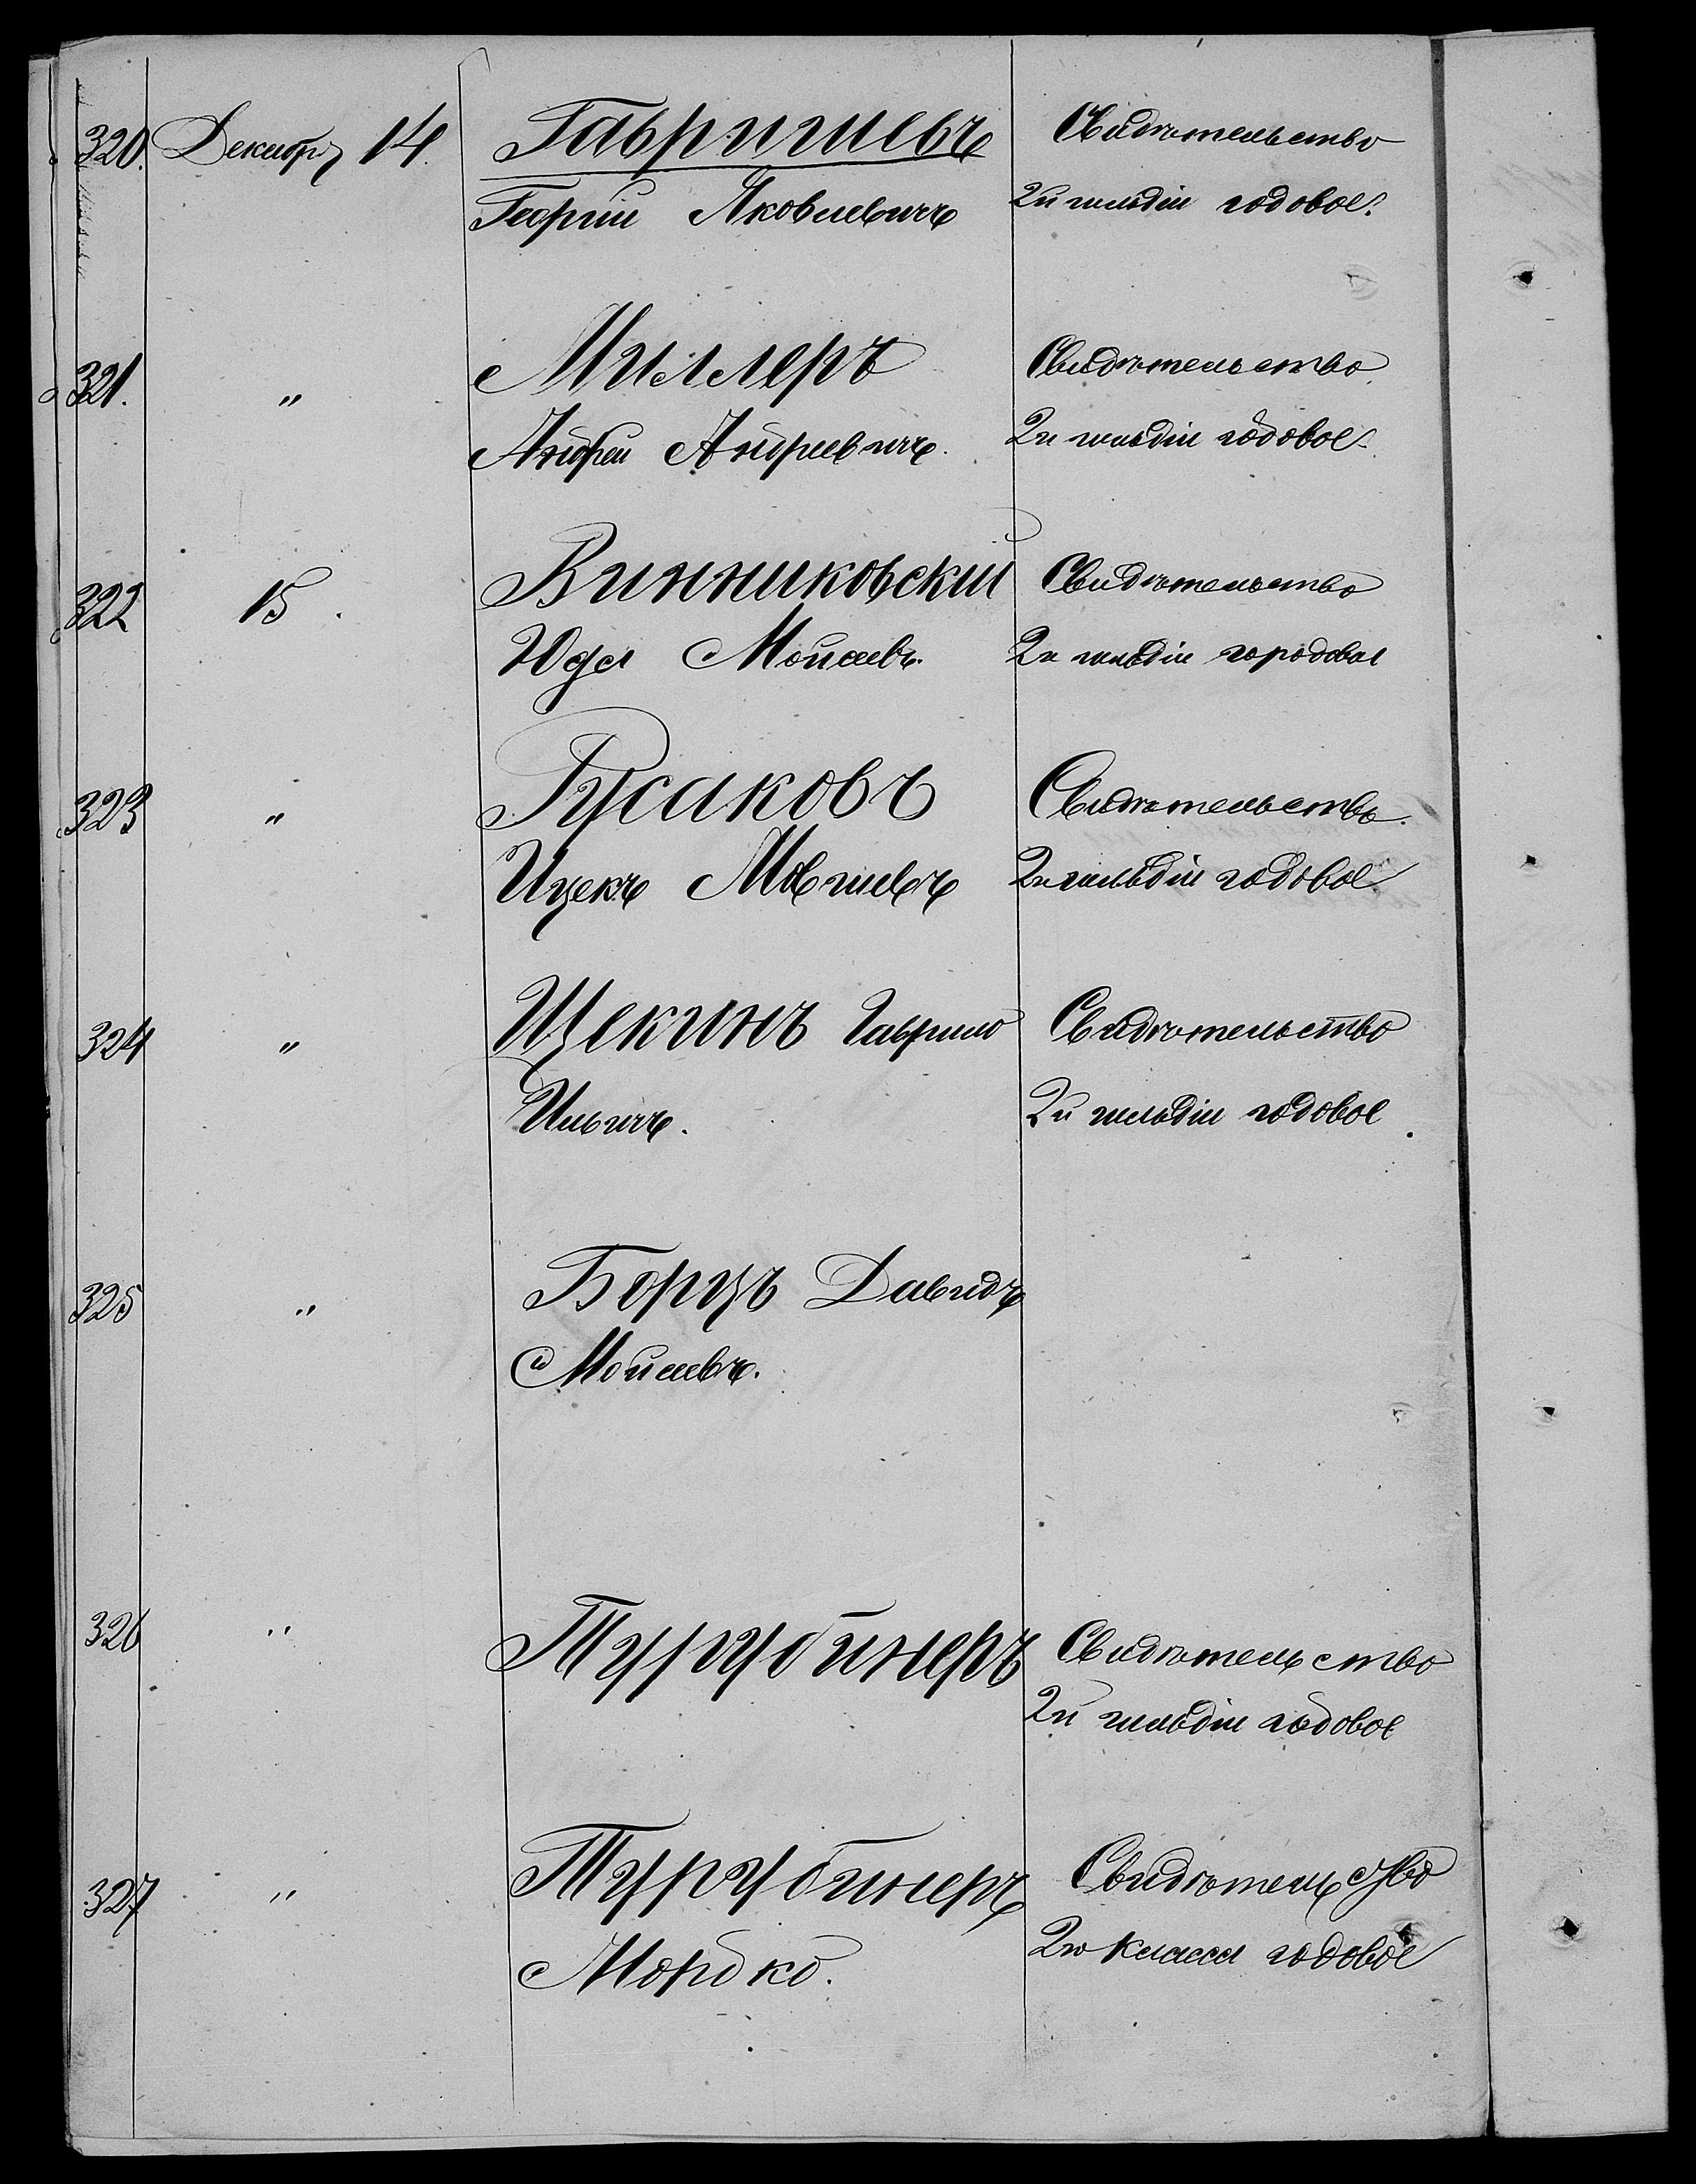 320. Декабрь 14. Гавришевъ Свидѣтельство
Георгій Яковлевичъ 2й гильдіи годовое.
321. " Миллеръ Свидѣтельство
Андрей Андреевичъ. 2й гильдіи годовое.
322 15. Винниковскій Свидѣтельство
Юдел Мойсеевъ. 2й гильдіи годовое
323 " Русаковъ Свидѣтельство.
Ицекъ Мовшевъ 2й гильдіи годовое
324 " Щекинъ Гаврило Свидѣтельство
Ильичъ. 2й гильдіи годовое
325 " Борцъ Давидъ
Мойсеевъ.
326 " Турубинеръ Свидѣтельство
2й гильдіи годовое
327 " Турубинеръ Свидѣтельство
Мордко. 2го класса годовое